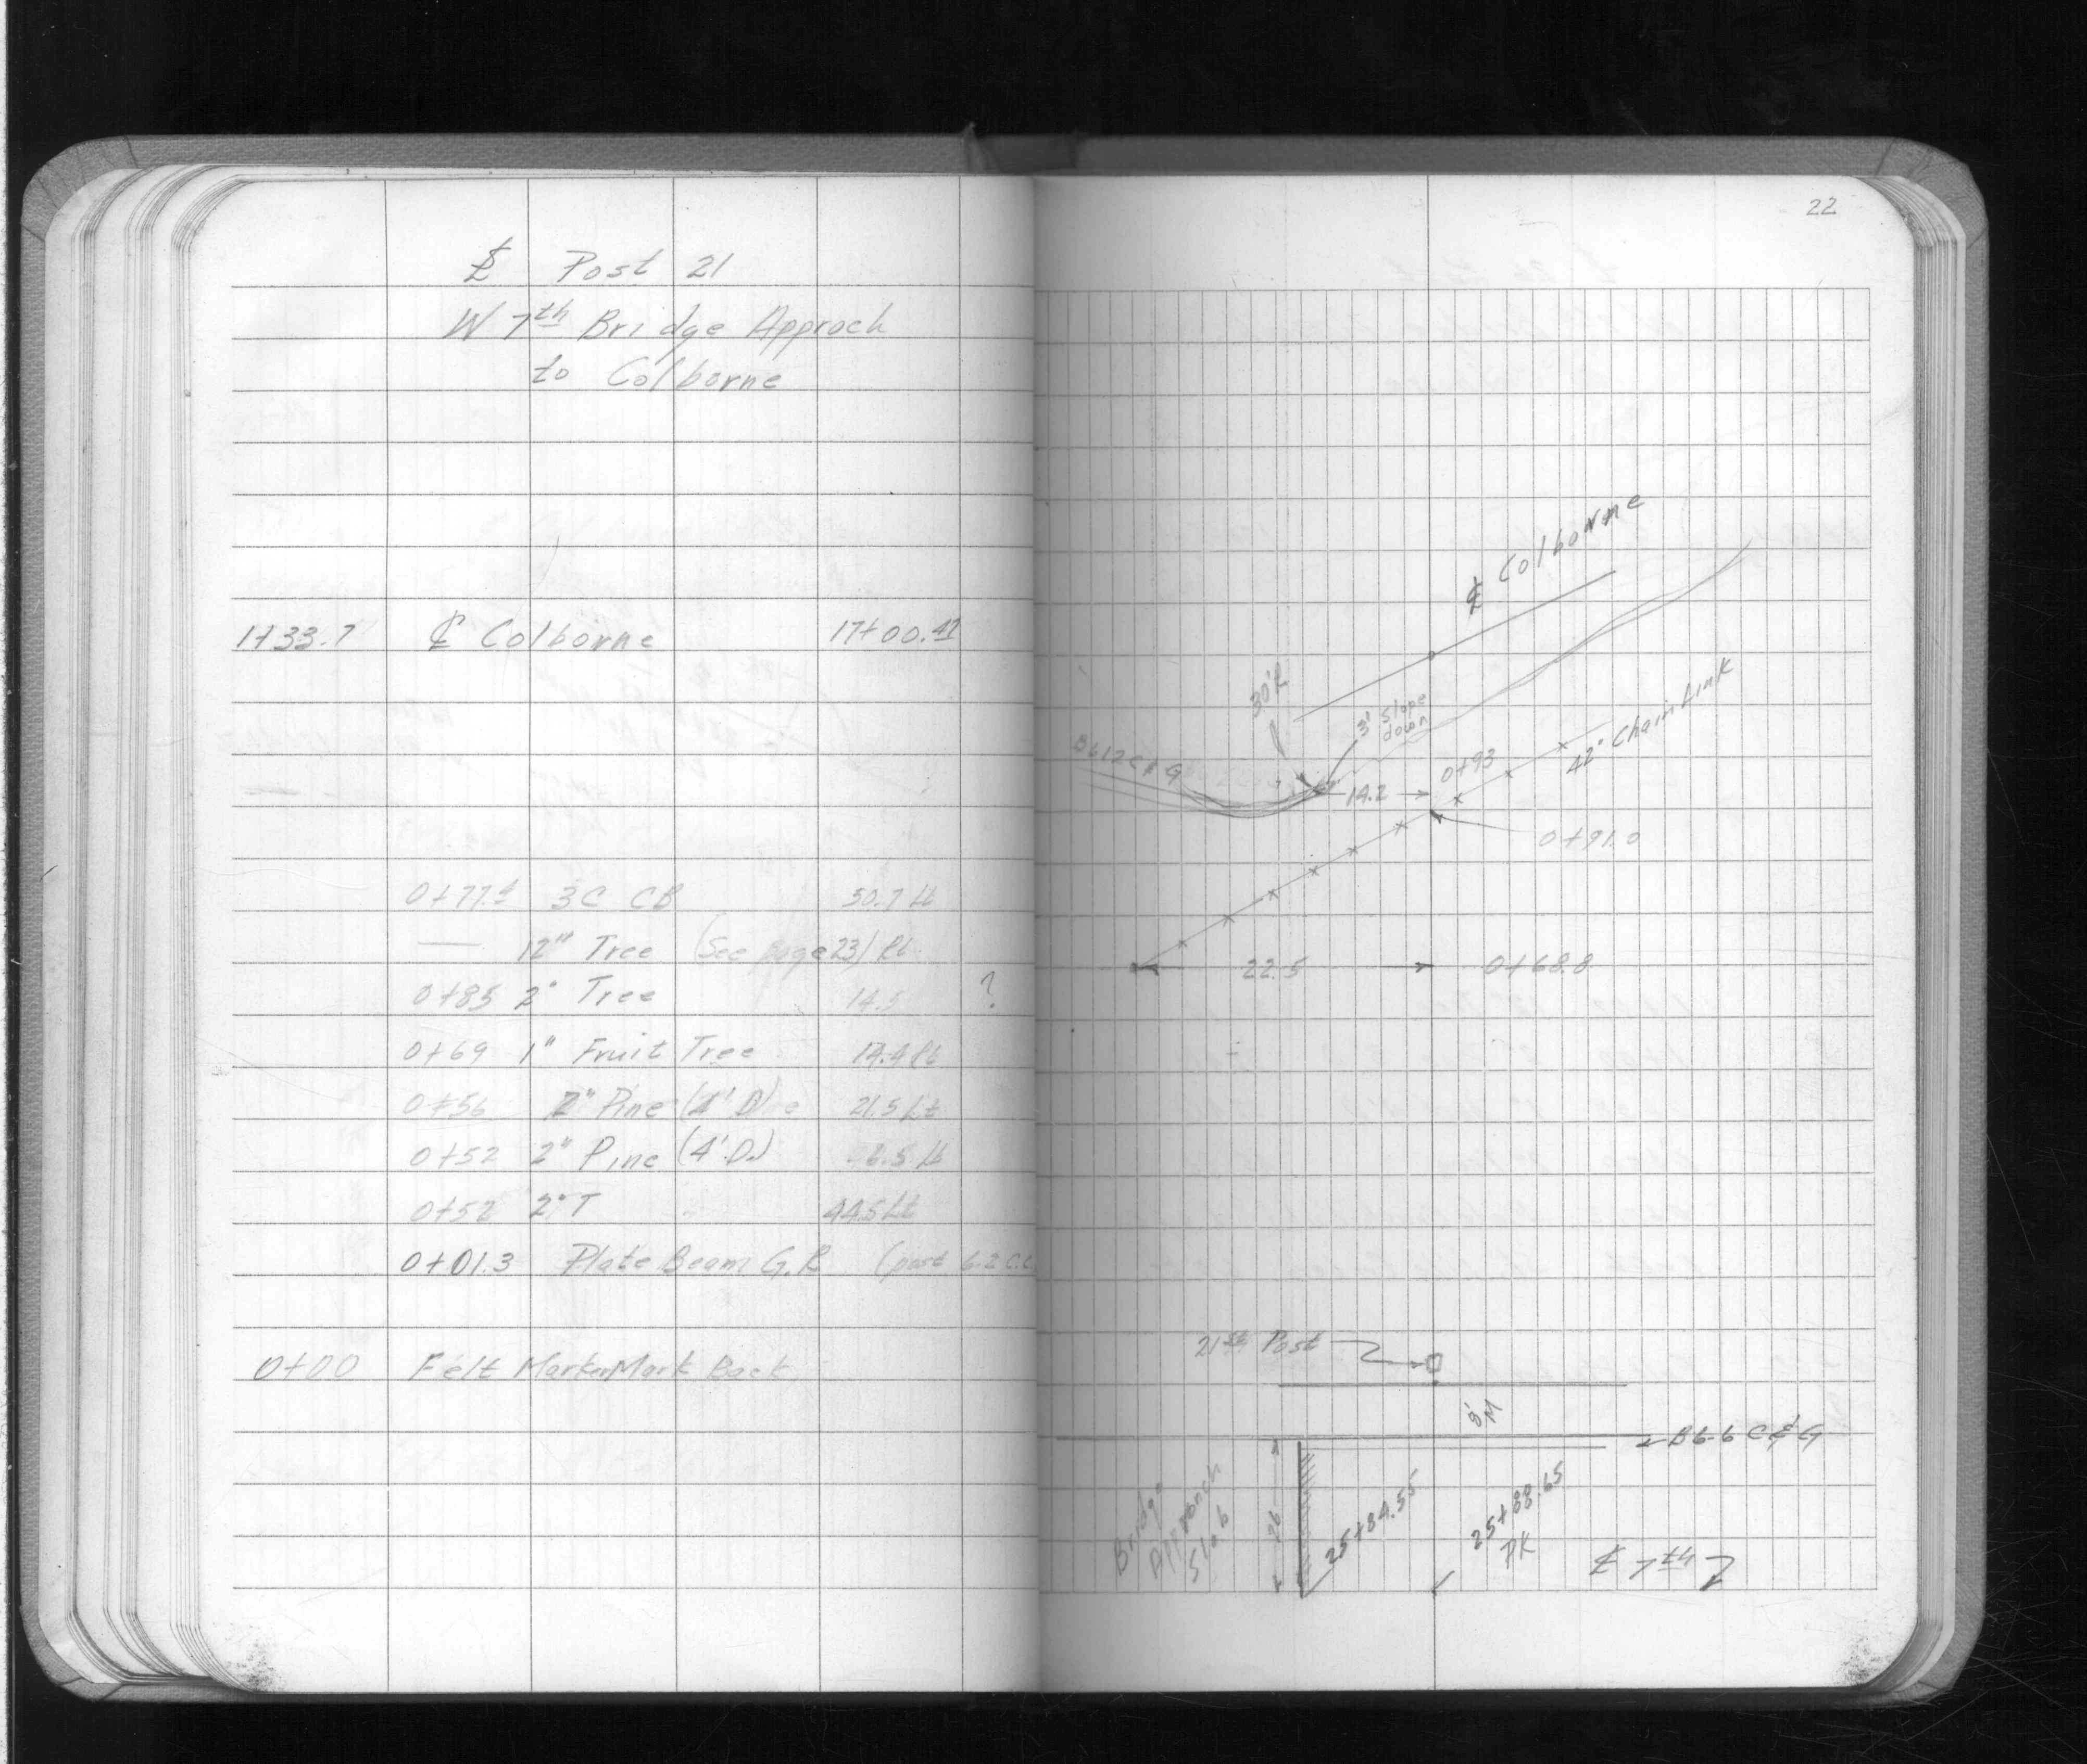 22
℄ Post 21
W 7th Bridge Approch
to Colborne
1+33.7 ℄ Colborne 17+00.47
0+77.4 3C CB 50.7 Lt
— 12" Tree (See page 23) Rt
0+85 2" Tree 14.5 ?
0+69 1" Fruit Tree 14.4 Rt
0+56 2" Pine (4' D) 21.5 Lt
0+52 2" Pine (4'.D.) 6.5 Lt
0+52 2" T 44.5 Lt
0+01.3 Plate Beam G.R (post 6.2 C.C.
0+00 Felt Marker Mark Back
℄ Colborne
30'R
3' Slope
down
B612 C & G
14.2
0+93
42" Chain Link
0+91.0
22.5 0+68.8
21st Post
8' W
B6-6 C & G
Bridge
Approach
Slab
26
25+84.55
25+88.65
PK
℄ 7th